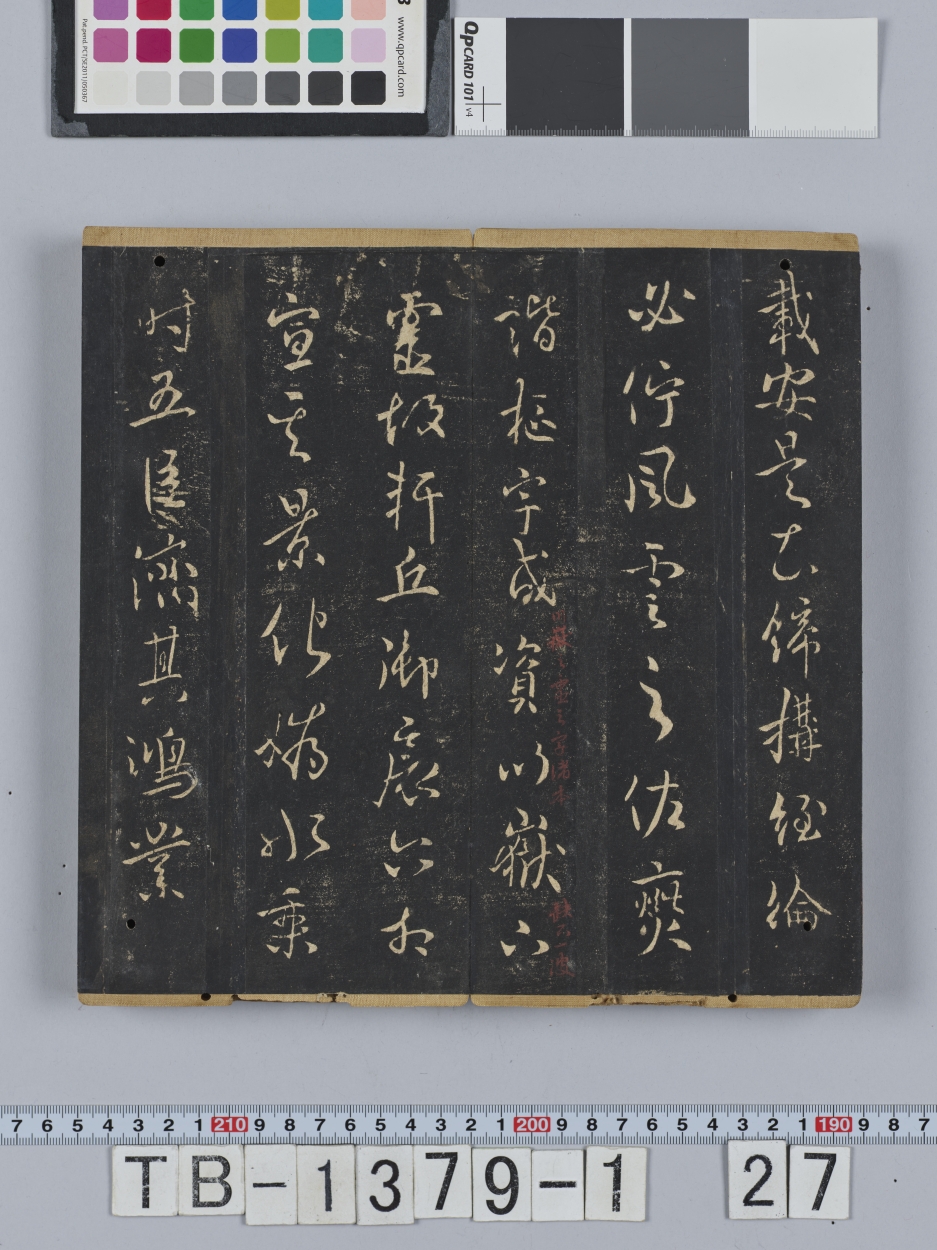 www.qpcard.com
Pat.pend. PCT/SE2011/050367
QPCARD 101 v4
載安是知締構經綸
必佇風雲之佐燮
諧樞宇咸資川嶽之
靈故軒丘御扆六相
宣其景化媯水乘
時五臣濟其鴻業
7 6 5 4 3 2 1 210 9 8 7 6 5 4 3 2 1 200 9 8 7 6 5 4 3 2 1 190 9 8 7
TB-1379-1 27